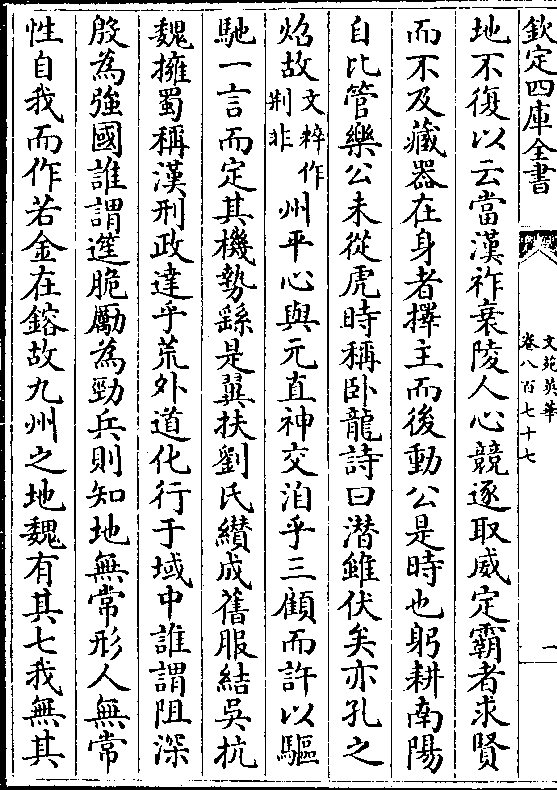 欽定四庫全書
文苑英華
卷八百七十七
一
地不復以云當漢祚衰陵人心競逐取威定霸者求賢
而不及藏器在身者擇主而後動公是時也躬耕南陽
自比管樂公未從虎時稱卧龍詩曰潜雖伏矣亦孔之
炤故文粹作荆非州平心與元直神交洎乎三顧而許以驅
馳一言而定其機勢繇是翼扶劉氏纉成舊服結吳抗
魏擁蜀稱漢刑政達乎荒外道化行于域中誰謂阻深
殷為強國誰謂𨗇脆勵為勁兵則知地無常形人無常
性自我而作若金在鎔故九州之地魏有其七我無其